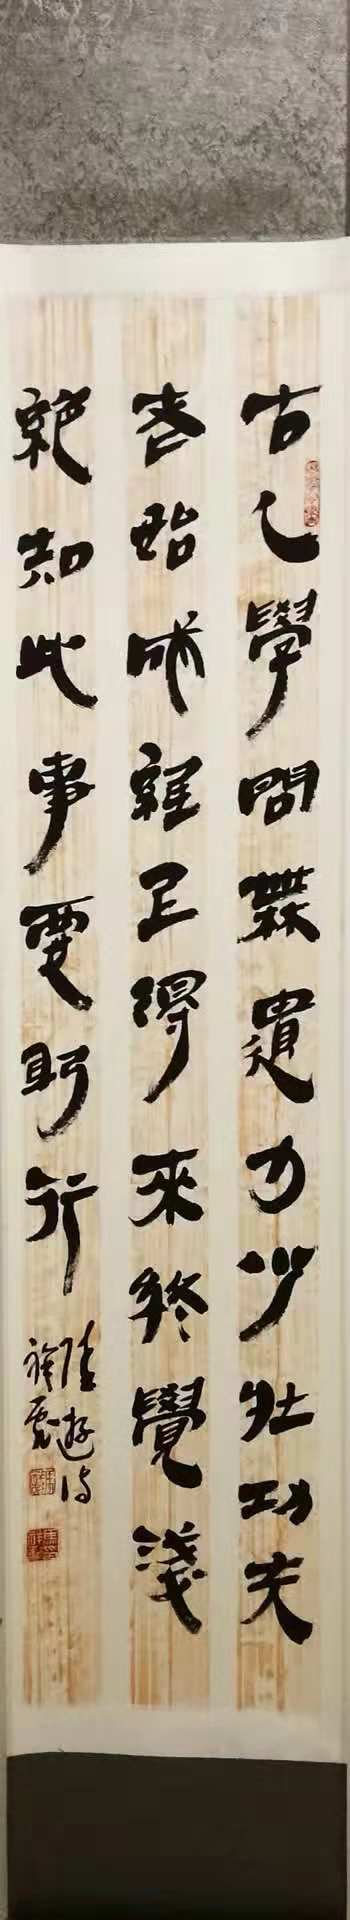 古人學問無遺力少壯功夫
老始成紙上得來終覺淺
絕知此事要躬行
陸游詩